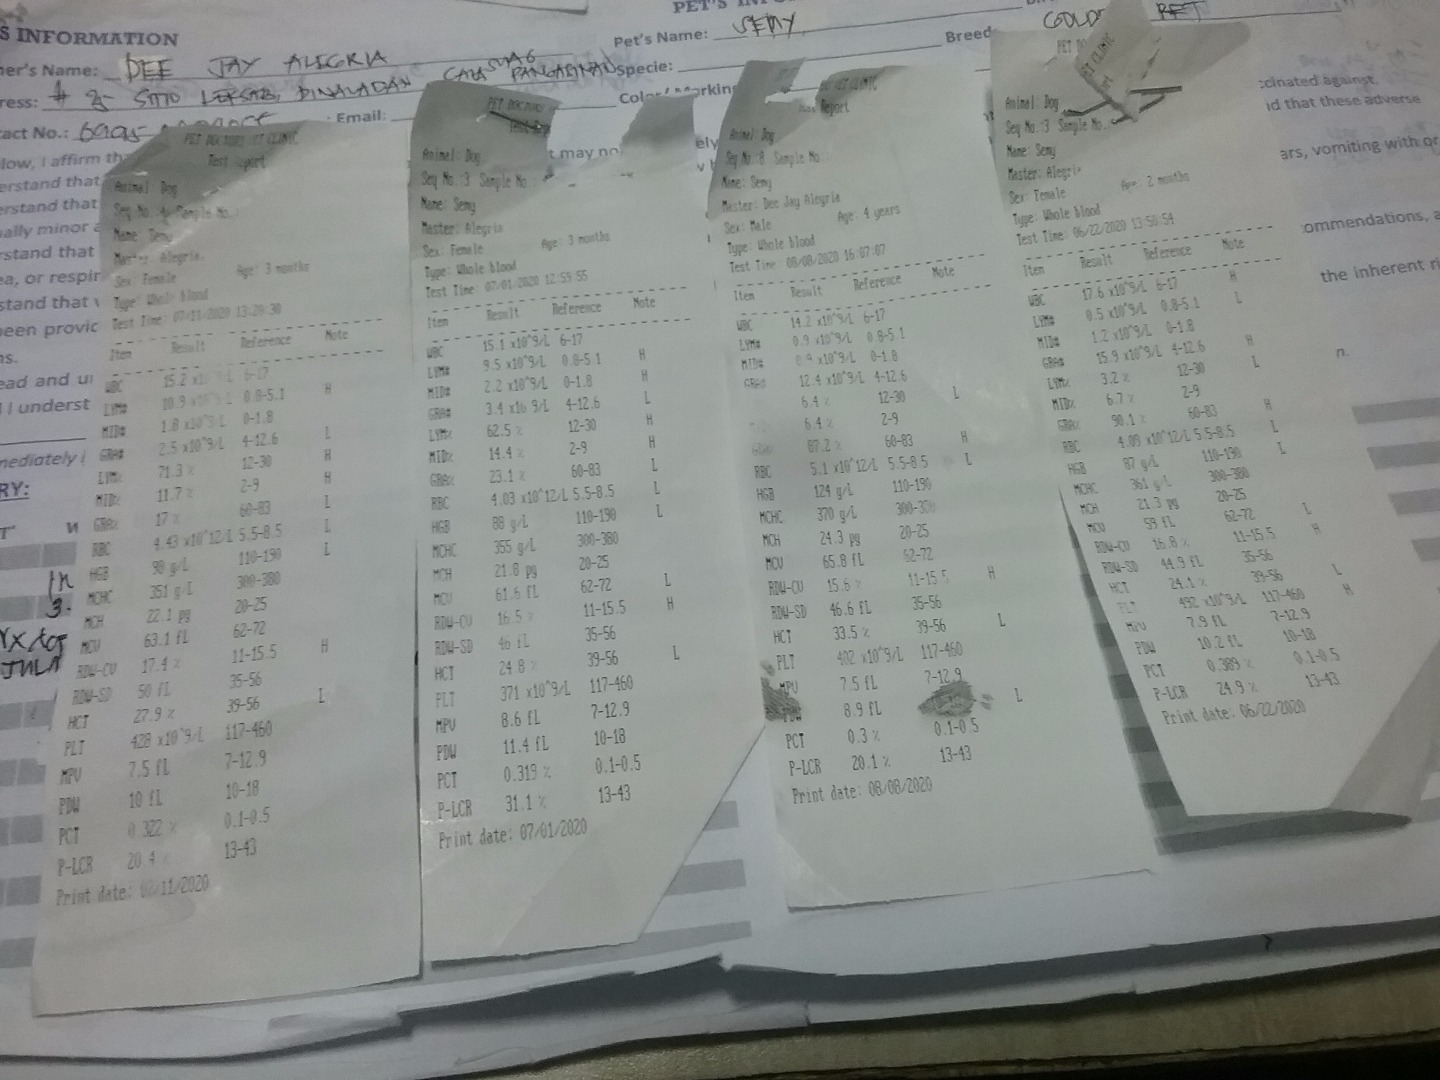 S INFORMATION
PET'S
ner's Name: DEE JAY ALEGRIA
Pet's Name: SEMY
Breed
RET
ress: # 3-
Specie:
tact No.:
Email:
low, I affirm th
t may no
erstand that
ally minor a
rstand that
ea, or respir
stand that
een provic
ns.
ead and u
I underst
mediately
RY:
ccinated against.
id that these adverse
ars, vomiting with or
ommendations, a
the inherent ri
n.
Test Report
Animal: Dog
Name: Semy
Master: Alegria
Sex: Female Age: 3 months
Type: Whole blood
Test Time: 07/11/2020 13:20:30
Item Result Reference Note
WBC 15.2 6-17
LYM# 10.9 x10^9/L 0.8-5.1 H
MID# 1.8 x10^9/L 0-1.8
GRA# 2.5 x10^9/L 4-12.6 L
LYM% 71.3 % 12-30 H
MID% 11.7 % 2-9 H
GRA% 17 % 60-83 L
RBC 4.43 x10^12/L 5.5-8.5 L
HGB 98 g/L 110-190 L
MCHC 351 g/L 300-380
MCH 22.1 pg 20-25
MCV 63.1 fL 62-72
RDW-CV 17.4 % 11-15.5 H
RDW-SD 50 fL 35-56
HCT 27.9 % 39-56 L
PLT 428 x10^9/L 117-460
MPV 7.5 fL 7-12.9
PDW 10 fL 10-18
PCT 0.322 % 0.1-0.5
P-LCR 20.4 % 13-43
Print date: 07/11/2020
Animal: Dog
Seq No.:3 Sample No.:
Name: Semy
Master: Alegria
Sex: Female Age: 3 months
Type: Whole blood
Test Time: 07/01/2020 12:59:55
Item Result Reference Note
WBC 15.1 x10^9/L 6-17
LYM# 9.5 x10^9/L 0.8-5.1 H
MID# 2.2 x10^9/L 0-1.8 H
GRA# 3.4 x10^9/L 4-12.6 L
LYM% 62.5 % 12-30 H
MID% 14.4 % 2-9 H
GRA% 23.1 % 60-83 L
RBC 4.03 x10^12/L 5.5-8.5 L
HGB 88 g/L 110-190 L
MCHC 355 g/L 300-380
MCH 21.8 pg 20-25
MCV 61.6 fL 62-72 L
RDW-CV 16.5 % 11-15.5 H
RDW-SD 46 fL 35-56
HCT 24.8 % 39-56 L
PLT 371 x10^9/L 117-460
MPV 8.6 fL 7-12.9
PDW 11.4 fL 10-18
PCT 0.319 % 0.1-0.5
P-LCR 31.1 % 13-43
Print date: 07/01/2020
Report
Animal: Dog
Seq No.:8 Sample No.
Name: Semy
Master: Dee Jay Alegria
Sex: Male Age: 4 years
Type: Whole blood
Test Time: 08/08/2020 16:07:07
Item Result Reference Note
WBC 14.2 x10^9/L 6-17
LYM# 0.9 x10^9/L 0.8-5.1
MID# 0.9 x10^9/L 0-1.8
GRA# 12.4 x10^9/L 4-12.6
6.4 % 12-30 L
6.4 % 2-9
GRA% 87.2 % 60-83 H
RBC 5.1 x10^12/L 5.5-8.5 L
HGB 124 g/L 110-190
MCHC 370 g/L 300-380
MCH 24.3 pg 20-25
MCV 65.8 fL 62-72
RDW-CV 15.6 % 11-15.5 H
RDW-SD 46.6 fL 35-56
HCT 33.5 % 39-56 L
PLT 402 x10^9/L 117-460
MPV 7.5 fL 7-12.9
PDW 8.9 fL L
PCT 0.3 % 0.1-0.5
P-LCR 20.1 % 13-43
Print date: 08/08/2020
Animal: Dog
Seq No.:3 Sample No.:
Name: Semy
Master: Alegria
Sex: Female Age: 2 months
Type: Whole blood
Test Time: 06/22/2020 13:50:54
Item Result Reference Note
WBC 17.6 x10^9/L 6-17 H
LYM# 0.5 x10^9/L 0.8-5.1 L
MID# 1.2 x10^9/L 0-1.8
GRA# 15.9 x10^9/L 4-12.6 H
LYM% 3.2 % 12-30 L
MID% 6.7 % 2-9
GRA% 90.1 % 60-83 H
RBC 4.09 x10^12/L 5.5-8.5 L
HGB 87 g/L 110-190 L
MCHC 361 g/L 300-380
MCH 21.3 pg 20-25
MCV 59 fL 62-72 L
RDW-CV 16.8 % 11-15.5 H
RDW-SD 44.9 fL 35-56
HCT 24.1 % 39-56 L
PLT 492 x10^9/L 117-460 H
MPV 7.9 fL 7-12.9
PDW 10.2 fL 10-18
PCT 0.389 % 0.1-0.5
P-LCR 24.9 % 13-43
Print date: 06/22/2020